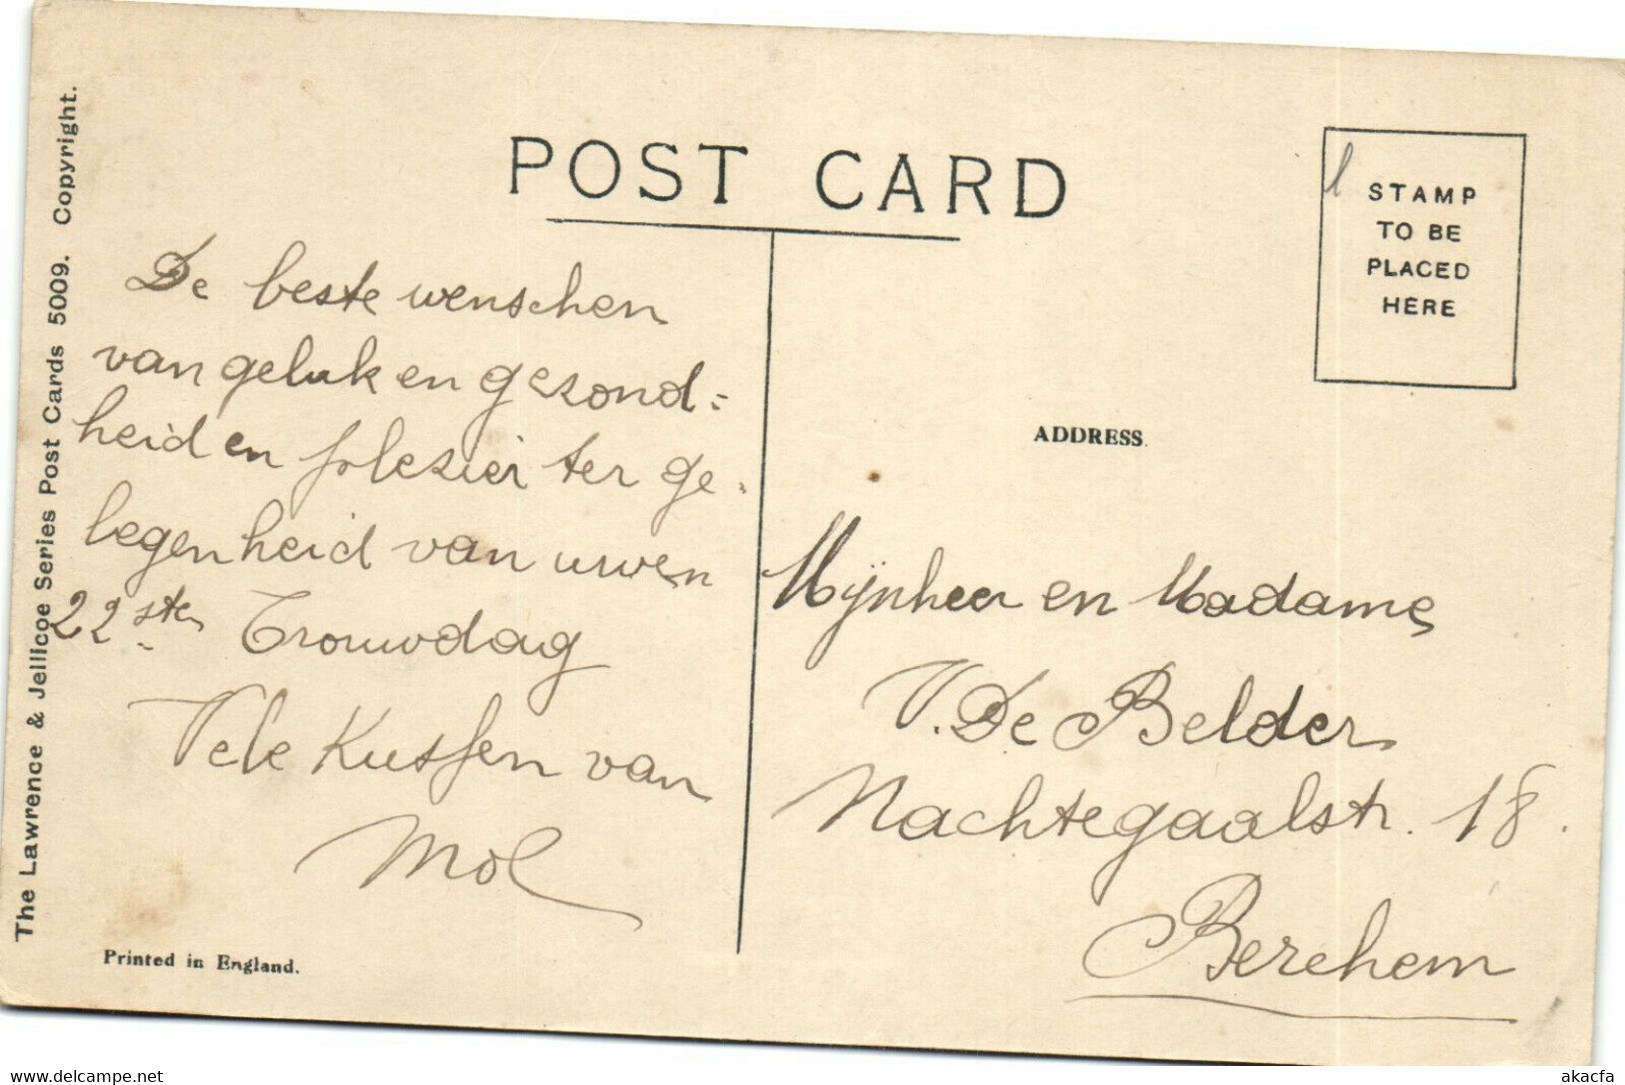 POST CARD
STAMP
TO BE
PLACED
HERE
The Lawrence & Jellicoe Series Post Cards 5009. Copyright.
De beste wenschen
van geluk en gezond=
heid en plezier ter ge-
legenheid van uwen
22.ste Trouwdag
Vele Kussen van
Mol
ADDRESS.
Mijnheer en Madame
V. De Belder
Nachtegaalstr. 18.
Berchem
Printed in England.
www.delcampe.net
akacfa